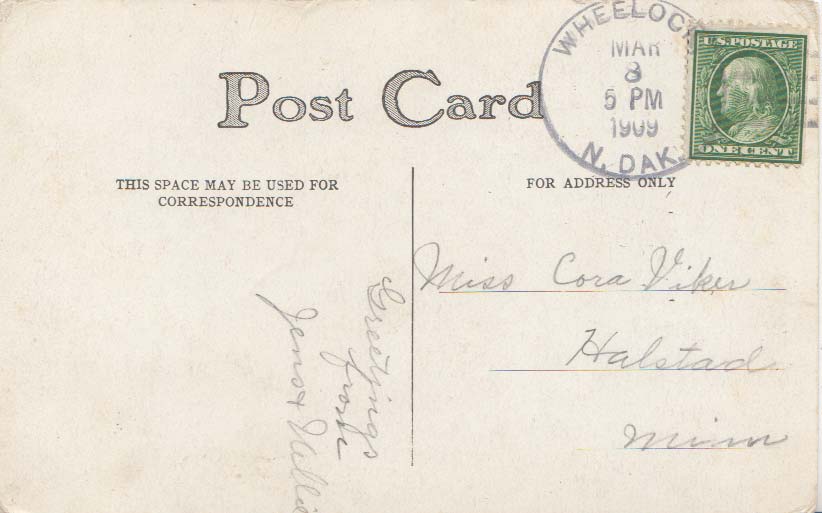 Post Card
WHEELOCK
MAR
8
5 PM
1909
N. DAK.
U.S. POSTAGE
ONE CENT
THIS SPACE MAY BE USED FOR
CORRESPONDENCE
FOR ADDRESS ONLY
Miss Cora Viker
Halstad
Minn
Greetings
from
Jens & Nellie